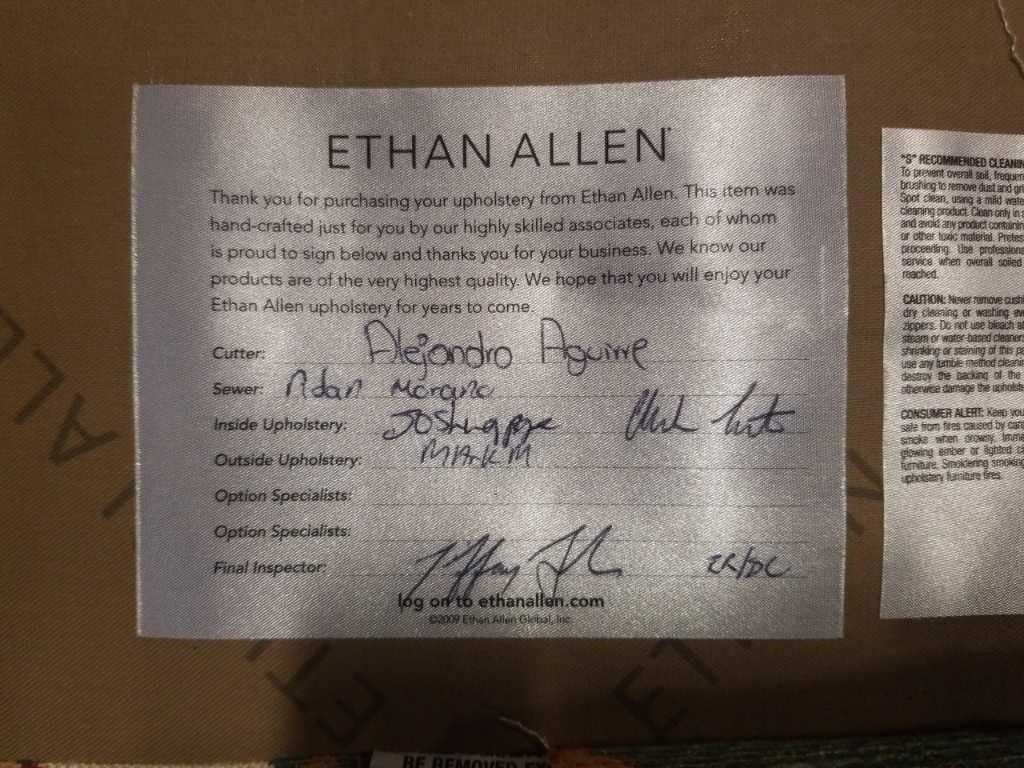 ETHAN ALLEN
Thank you for purchasing your upholstery from Ethan Allen. This item was
hand-crafted just for you by our highly skilled associates, each of whom
is proud to sign below and thanks you for your business. We know our
products are of the very highest quality. We hope that you will enjoy your
Ethan Allen upholstery for years to come.
Cutter: Alejandro Aguirre
Sewer:
Inside Upholstery:
Outside Upholstery: MARK M
Option Specialists:
Option Specialists:
Final Inspector: Tiffany
log on to ethanallen.com
©2009 Ethan Allen Global, Inc.
"S" RECOMMENDED
To prevent overall soil,
brushing to remove dust and
Spot clean, using a mild
cleaning product. Clean only in
and avoid any product
or other toxic material.
proceeding. Use
service when overall soiled
reached.
CAUTION: Never remove
dry cleaning or washing
zippers. Do not use bleach
steam or water-based
shrinking or staining of this
use any tumble method
destroy the backing of the
otherwise damage the
CONSUMER ALERT: Keep
safe from fires caused by
smoke when drowsy.
glowing ember or lighted
furniture. Smoldering
upholstery furniture fires.
BE REMOVED